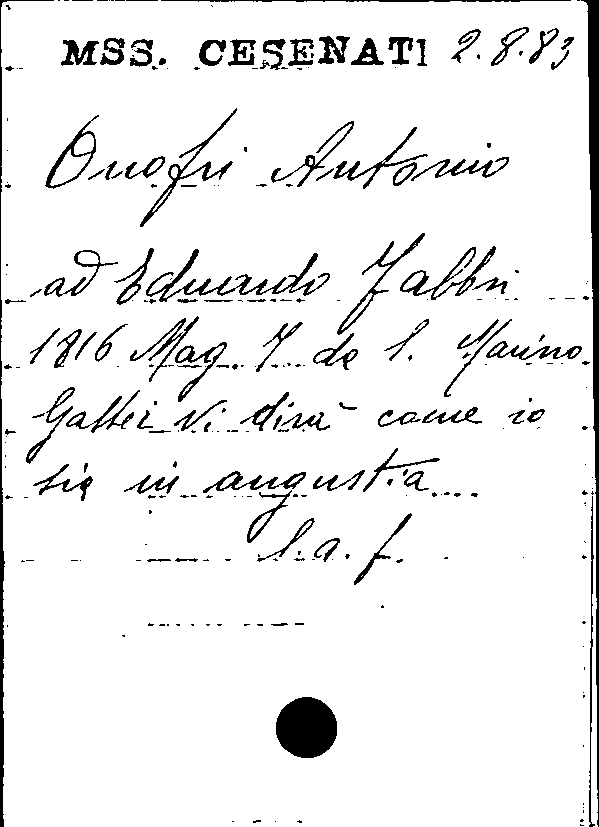 MSS. CESENATI 2.8.83
Onofri Antonio
ad Eduardo Fabbri
1816 Mag. 7 da S. Marino
Gattei vi dirà come io
sia in angustia....
l.a.f.